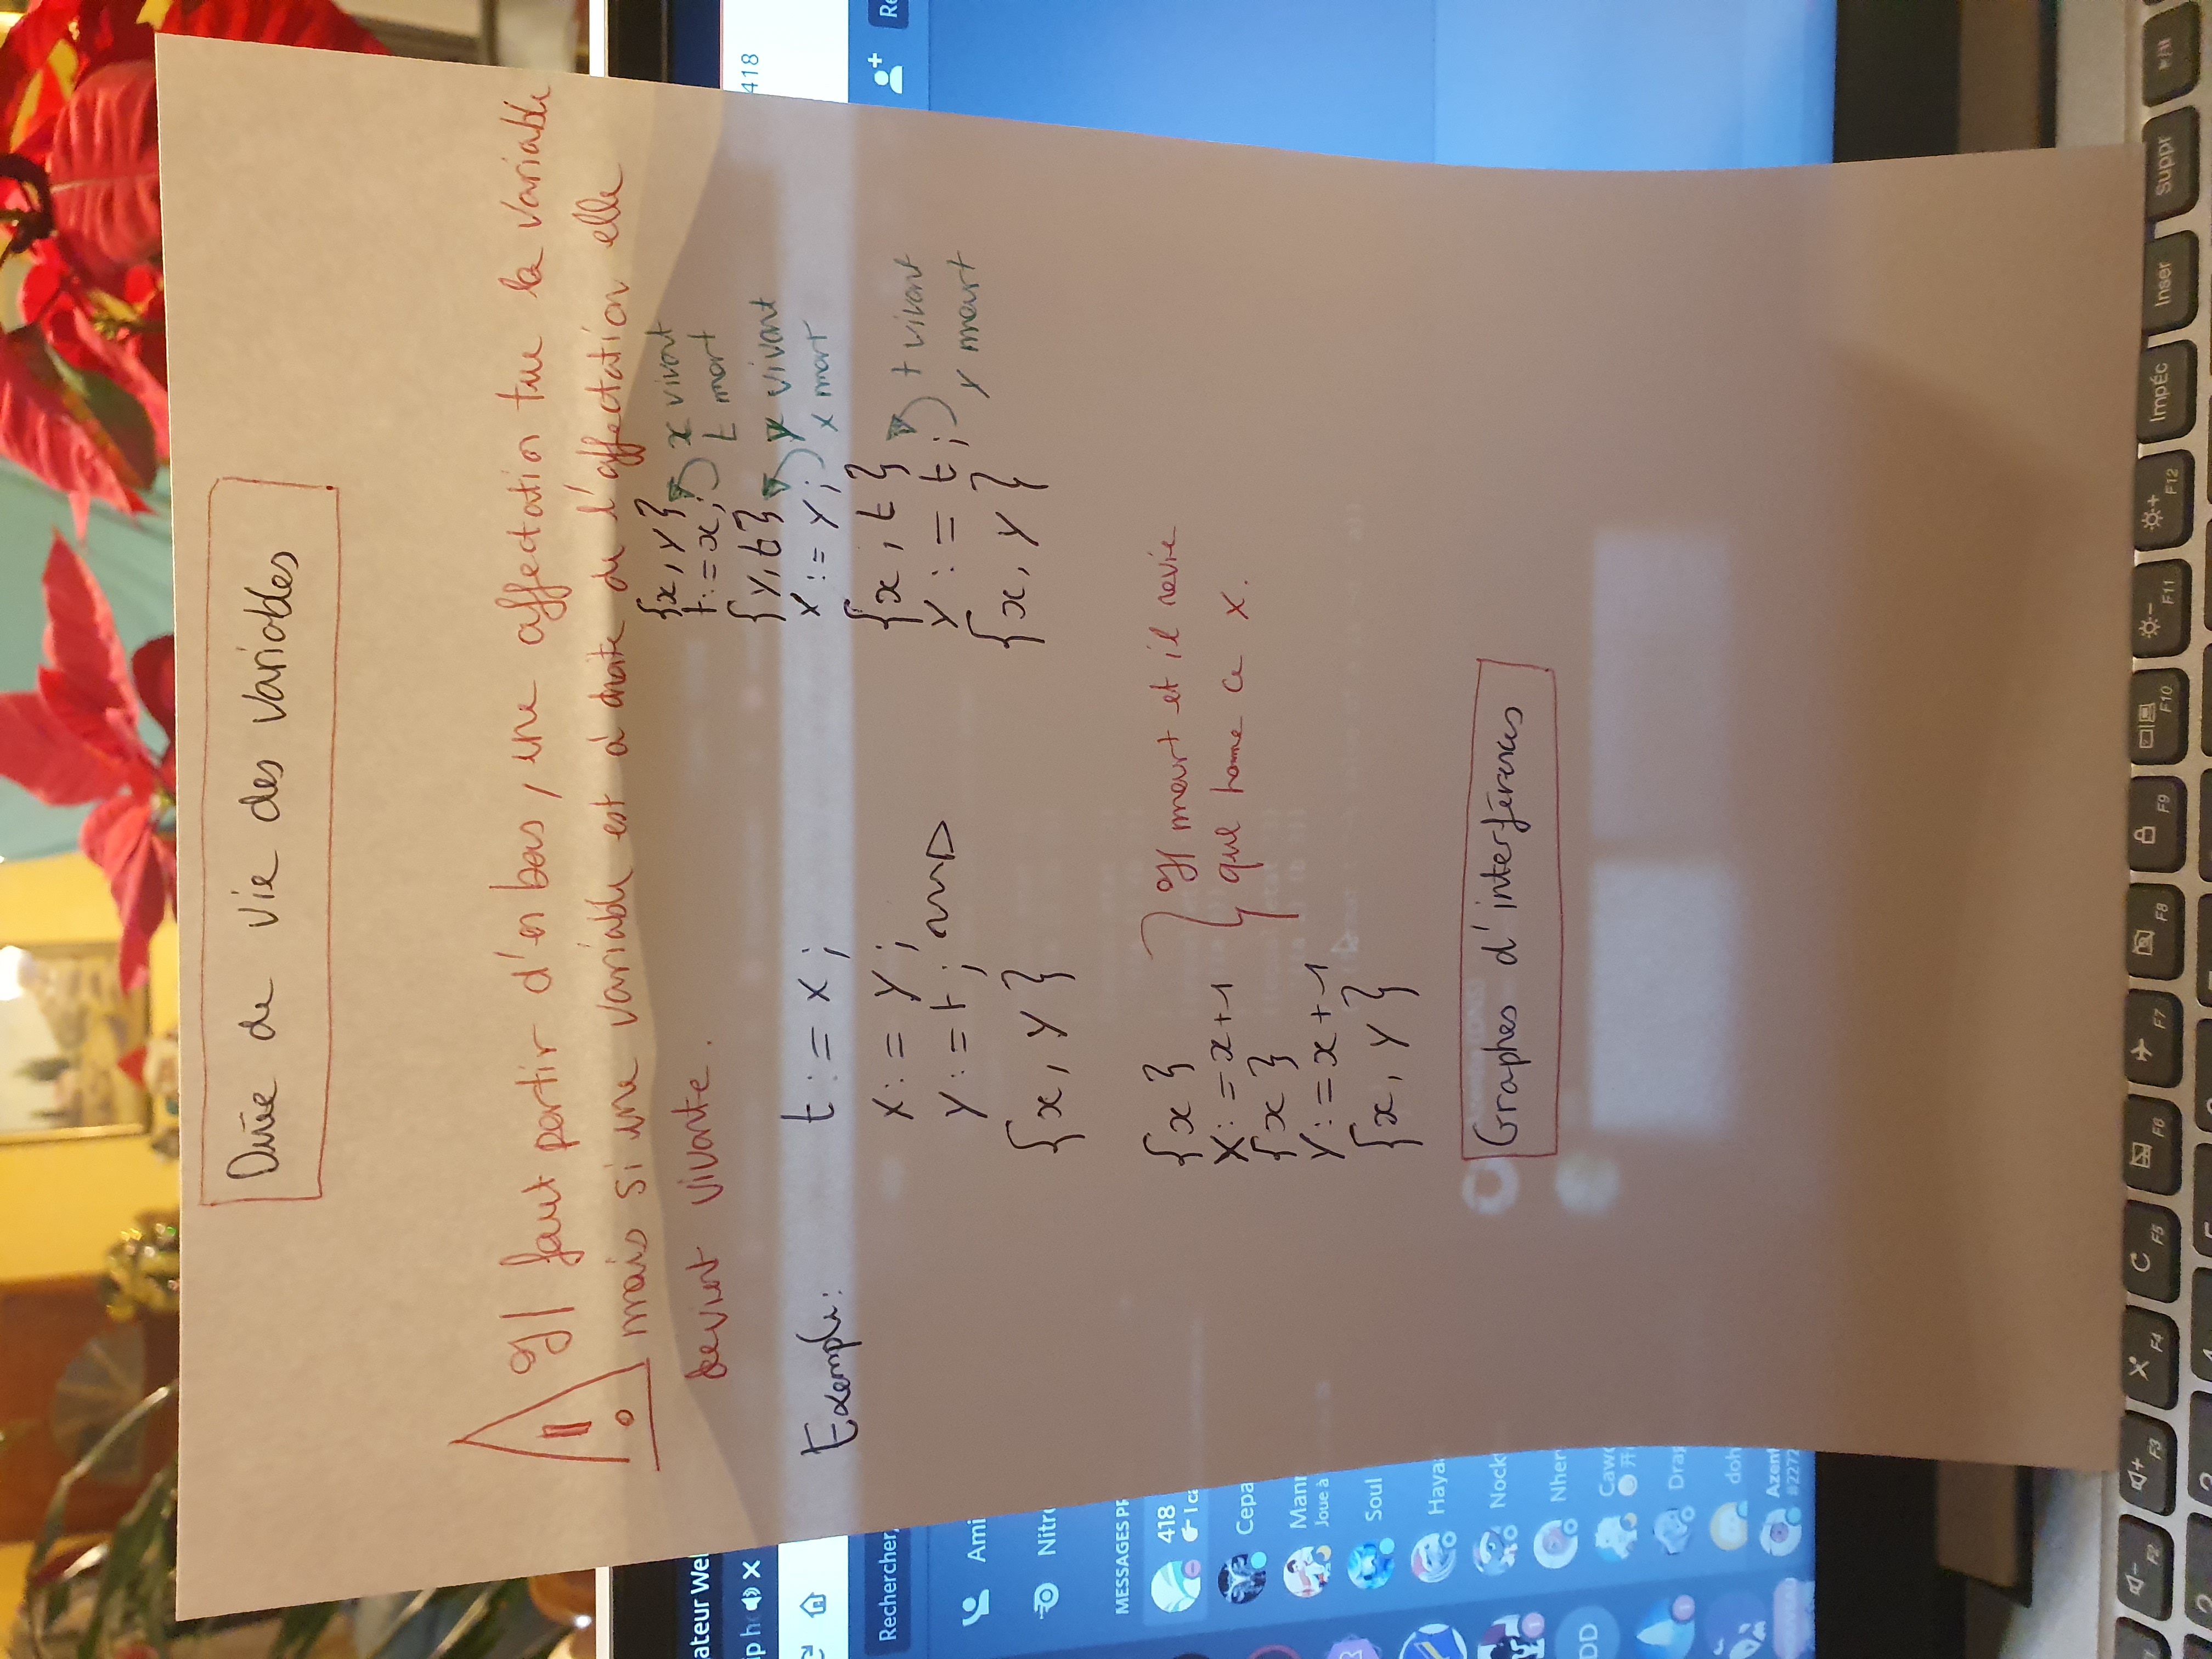 Durée de vie des variables
Il faut partir d'en bas, une affectation tue la variable
mais si une variable est à droite de l'affectation elle
devient vivante.
Exemple:
t := x ;
x := y ;
y := t ;
{x, y}
{x, y}
t := x ;
x vivant
t mort
{y, t}
x := y ;
y vivant
x mort
{x, t}
y := t ;
t vivant
y meurt
{x, y}
{x}
x := x+1
{x}
y := x+1
{x, y}
Il meurt et il revie
que home ce x.
Graphes d'interférences
ateur Wel
418
Rechercher,
Ami
Nitr
MESSAGES PR
418
Cepa
Mann
Joue à
Soul
Haya
Nock
Nher
DD
Cawo
Drag
doh
Azent
#2272
F2
F3
F4
F5
F6
F7
F8
F9
F10
F11
F12
ImpÉc
Inser
Suppr